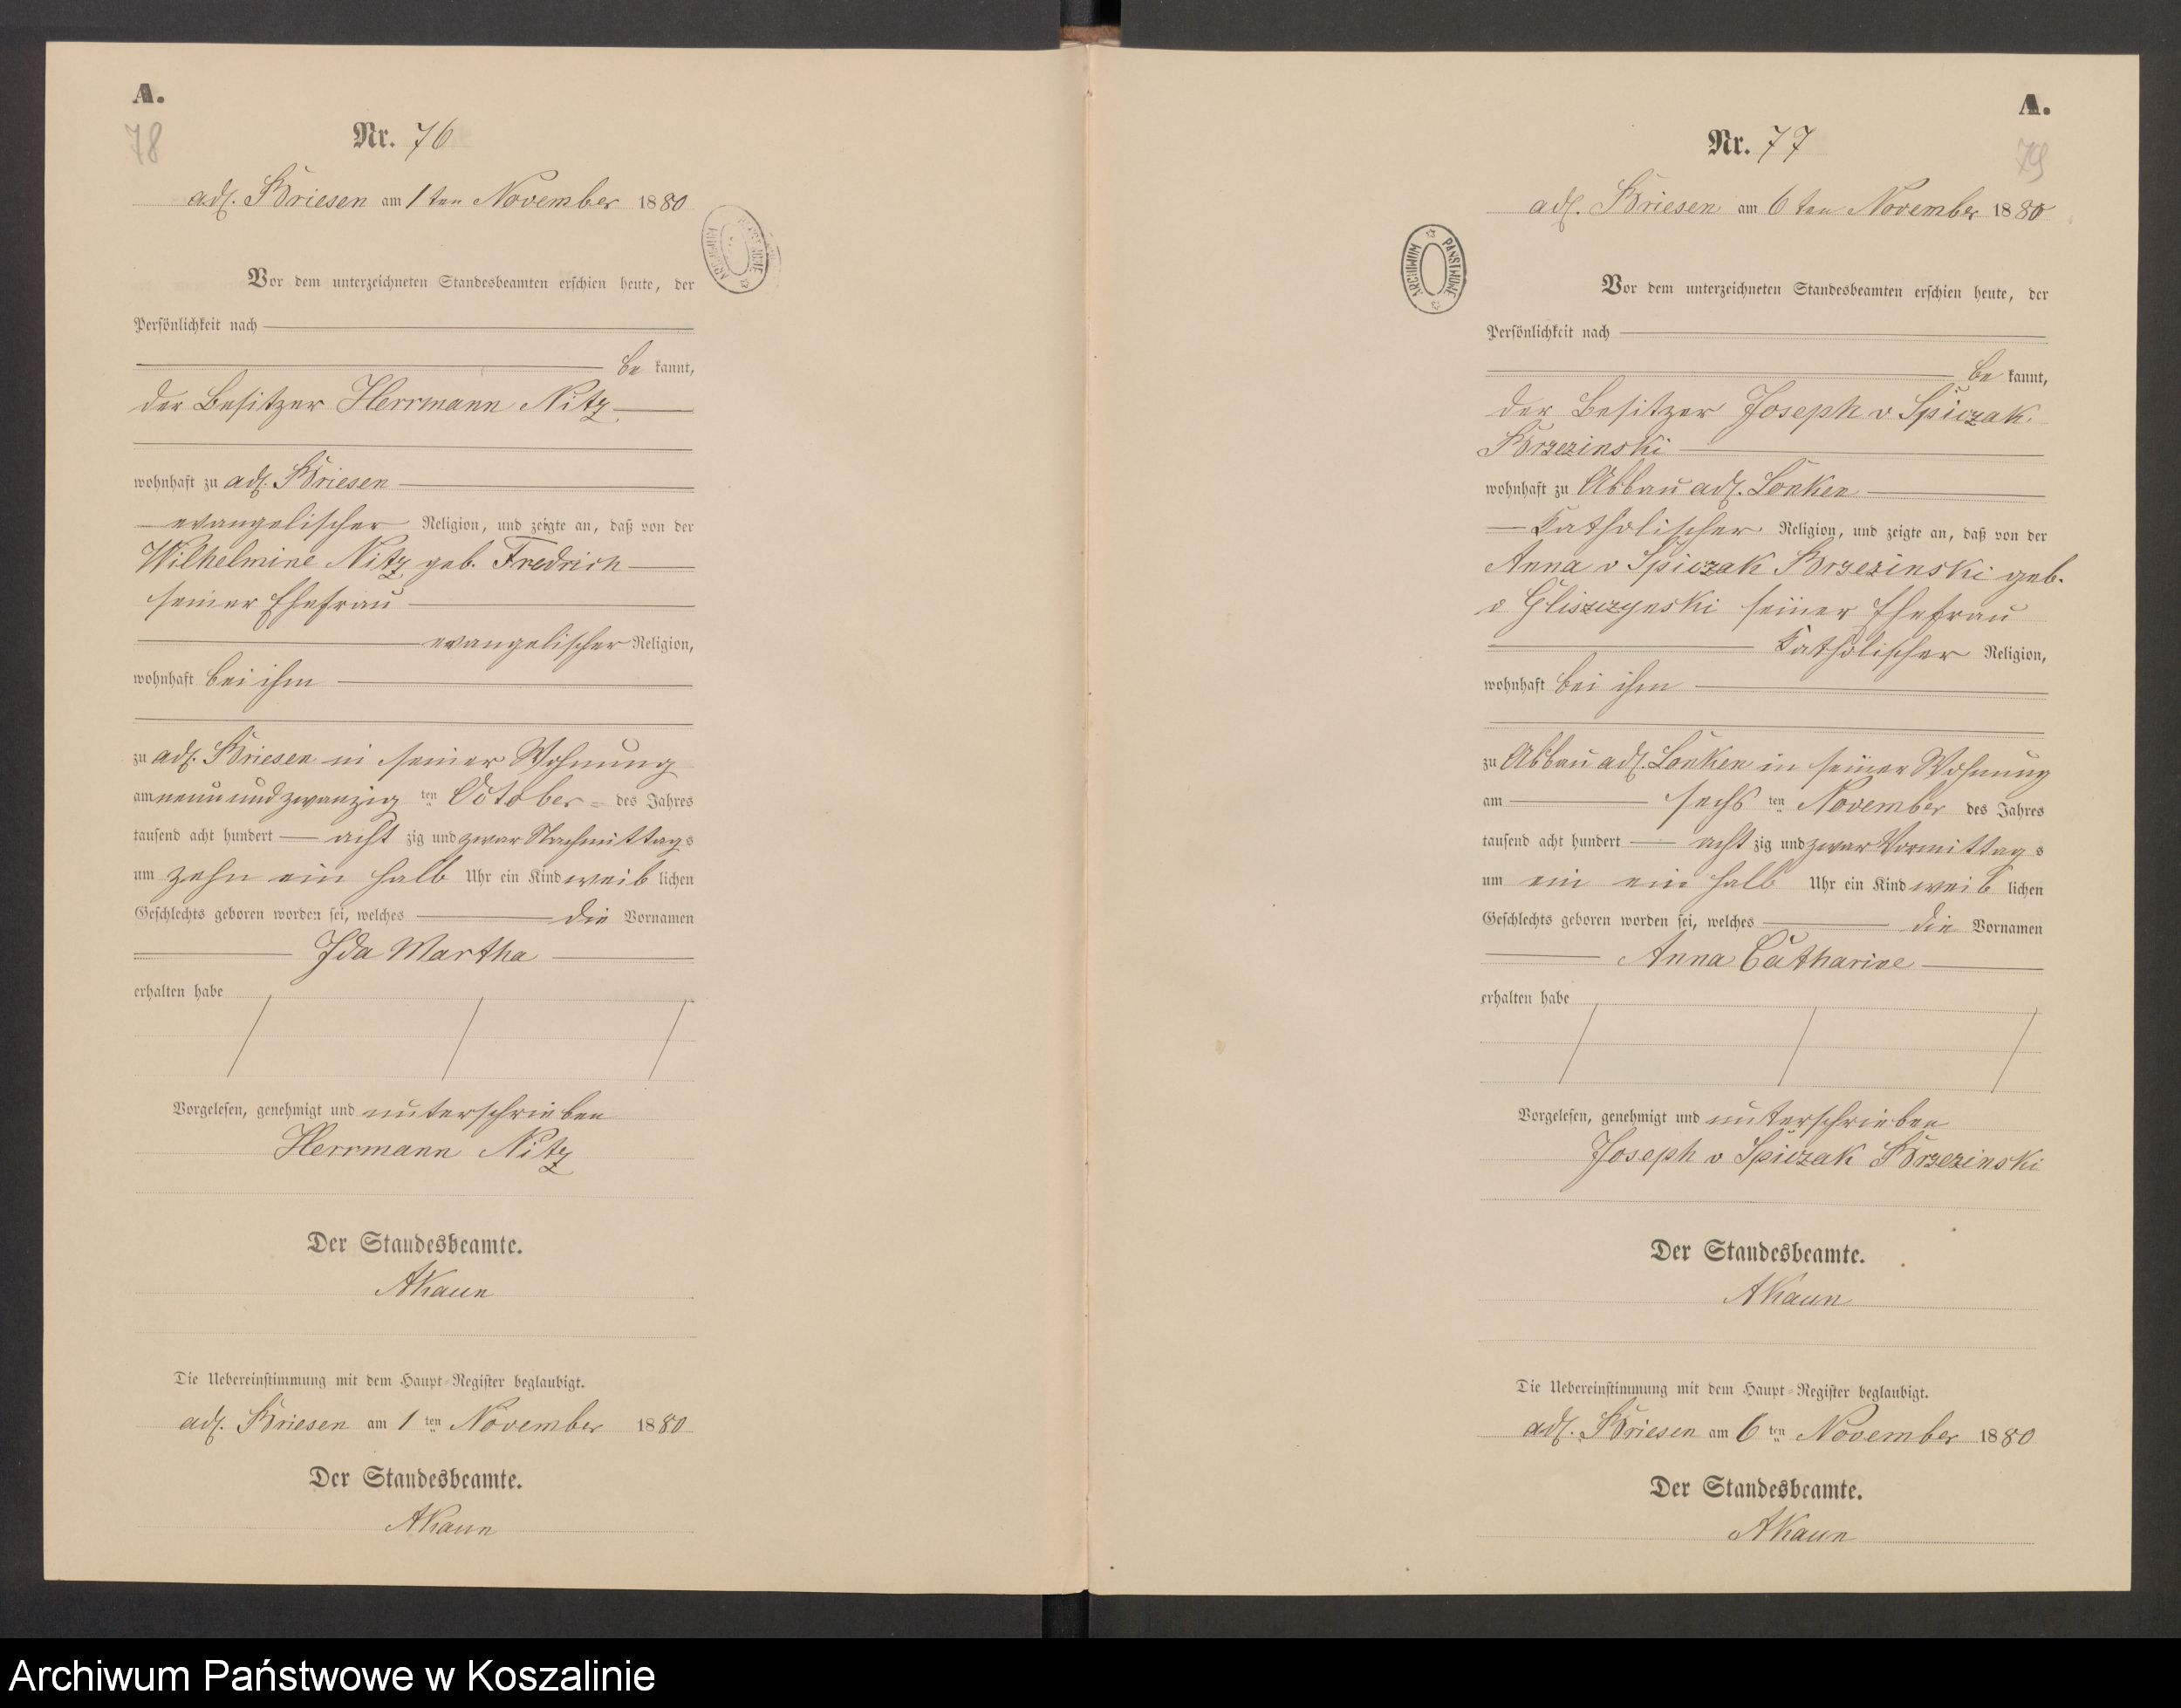 A.
78
Nr. 76
adl. Briesen am 1 ten November 1880
Vor dem unterzeichneten Standesbeamten erschien heute, der
Persönlichkeit nach
be kannt,
der Besitzer Herrmann Nitz
wohnhaft zu adl. Briesen
evangelischer Religion, und zeigte an, daß von der
Wilhelmine Nitz geb. Fredrich
seiner Ehefrau
evangelischer Religion,
wohnhaft bei ihm
zu adl. Briesen in seiner Wohnung
am neunundzwanzig ten October des Jahres
tausend acht hundert acht zig und zwar Nachmittags
um zehn ein halb Uhr ein Kind weib lichen
Geschlechts geboren worden sei, welches die Vornamen
Ida Martha
erhalten habe
Vorgelesen, genehmigt und unterschrieben
Herrmann Nitz
Der Standesbeamte.
AKaun
Die Uebereinstimmung mit dem Haupt-Register beglaubigt.
adl. Briesen am 1 ten November 1880
Der Standesbeamte.
AKaun
ARCHIWUM PAŃSTWOWE
A.
79
Nr. 77
adl. Briesen am 6 ten November 1880
ARCHIWUM PAŃSTWOWE
Vor dem unterzeichneten Standesbeamten erschien heute, der
Persönlichkeit nach
be kannt,
der Besitzer Joseph v Spiczak
Brzezinski
wohnhaft zu Abbau adl. Lonken
Katholischer Religion, und zeigte an, daß von der
Anna v Spiczak Brzezinski geb.
v Gliszczynski seiner Ehefrau
Katholischer Religion,
wohnhaft bei ihm
zu Abbau adl. Lonken in seiner Wohnung
am sechs ten November des Jahres
tausend acht hundert acht zig und zwar Vormittags
um ein ein halb Uhr ein Kind weib lichen
Geschlechts geboren worden sei, welches die Vornamen
Anna Catharine
erhalten habe
Vorgelesen, genehmigt und unterschrieben
Joseph v Spiczak Brzezinski
Der Standesbeamte.
AKaun
Die Uebereinstimmung mit dem Haupt-Register beglaubigt.
adl. Briesen am 6 ten November 1880
Der Standesbeamte.
AKaun
Archiwum Państwowe w Koszalinie